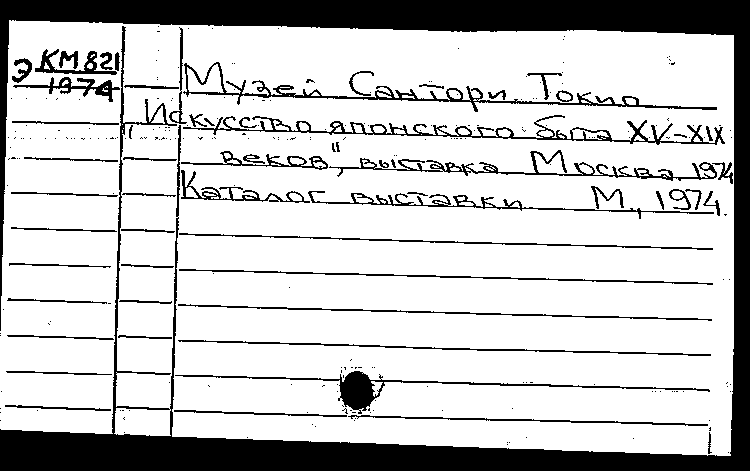 Э КМ 821
1974
Музей Сантори. Токио
„Искусство японского быта XV-XIX
веков", выставка. Москва. 1974
Каталог выставки. М., 1974.